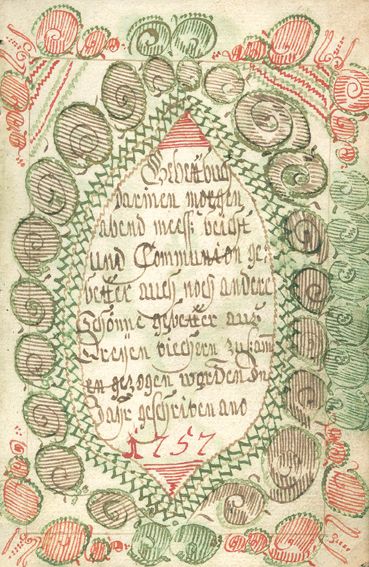 Gebettbuch
darinen morgen
abend mess: beicht
und Communion ge:
better auch noch andere
schönne gebetter aus
Dreÿen biechern zu sam
en gezogen worden Im
Jahr geschriben ano
1757